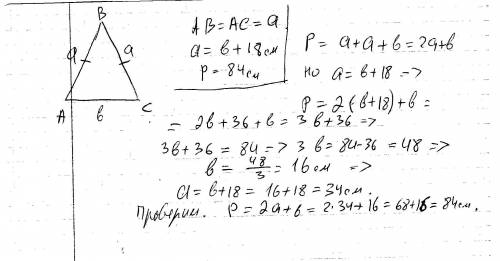 B
a
a
A
b
C
AB = AC = a
a = b + 18 см
P = 84 см
P = a + a + b = 2a + b
но a = b + 18 =>
P = 2(b + 18) + b =
= 2b + 36 + b = 3b + 36 =>
3b + 36 = 84 => 3b = 84 - 36 = 48 =>
b = 48/3 = 16 см =>
a = b + 18 = 16 + 18 = 34 см.
Проверим. P = 2a + b = 2·34 + 16 = 68 + 16 = 84 см.